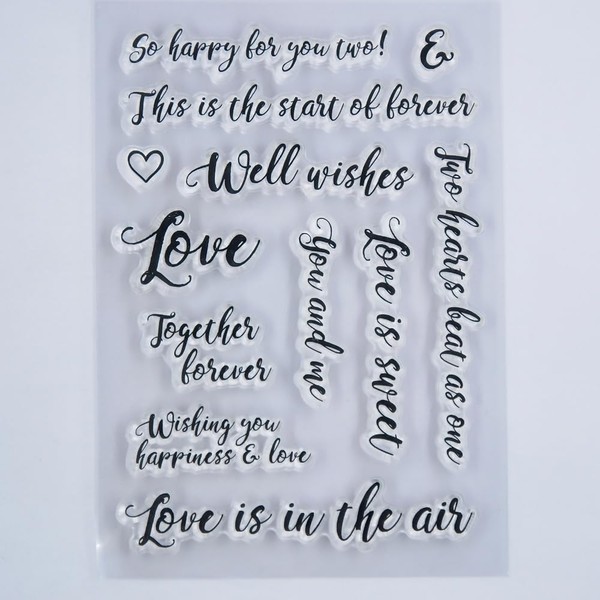 So happy for you two!
&
This is the start of forever
Well wishes
Love
Together
forever
Wishing you
happiness & love
You and me
Love is sweet
Two hearts beat as one
Love is in the air